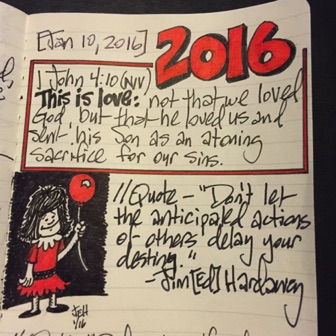 [Jan 10, 2016] 2016
1 John 4:10 (NIV)
This is love: not that we loved
God, but that he loved us and
sent his Son as an atoning
sacrifice for our sins.
//Quote - "Don't let
the anticipated actions
of others delay your
destiny."
- Jim[Ed] Hardaway
JEH
1/16